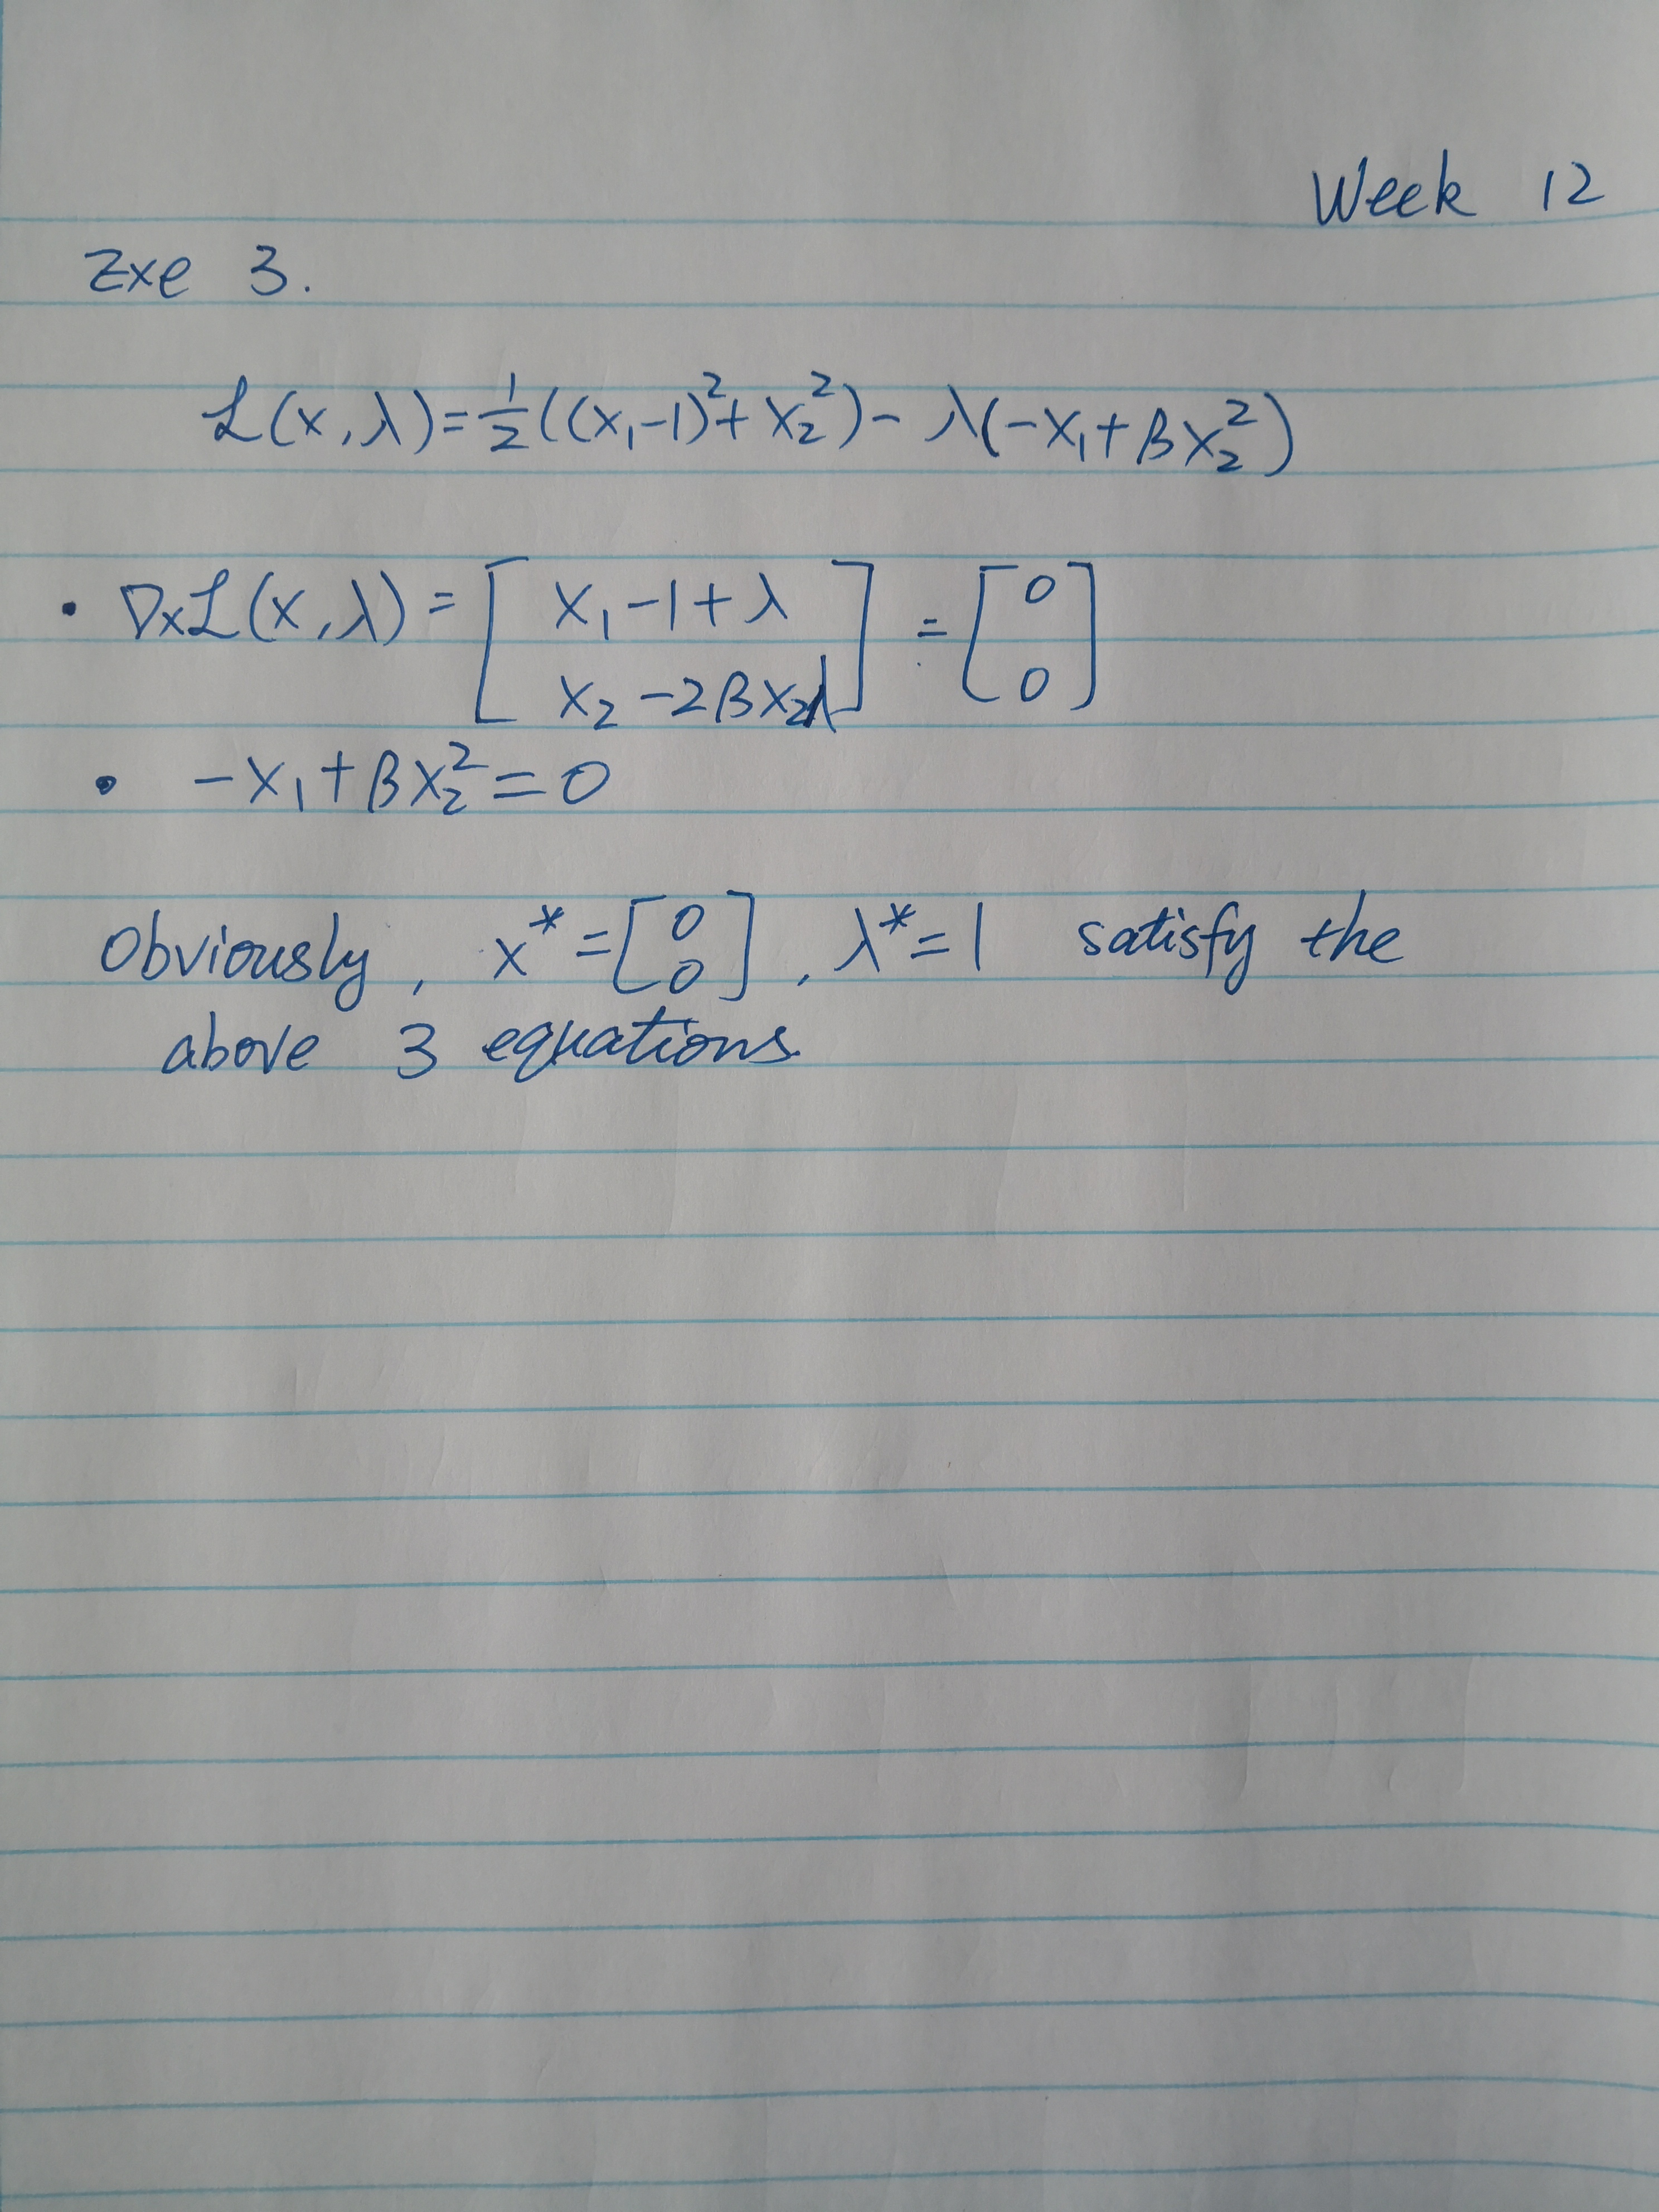 Week 12
Exe 3.
ℒ(x,λ)=½((x₁-1)²+x₂²)-λ(-x₁+βx₂²)
• ∇xℒ(x,λ)=[x₁-1+λ; x₂-2βx₂λ]=[0; 0]
• -x₁+βx₂²=0
Obviously, x*=[0; 0], λ*=1 satisfy the
above 3 equations.